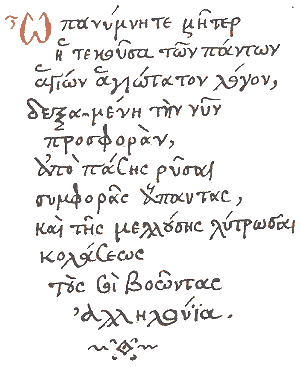 Ὦ πανύμνητε μῆτερ
ἡ τεκοῦσα τῶν πάντων
ἁγίων ἁγιώτατον λόγον,
δεξαμένη τὴν νῦν
προσφοράν,
ἀπὸ πάσης ῥῦσαι
συμφορᾶς ἅπαντας,
καὶ τῆς μελλούσης λύτρωσαι
κολάσεως
τοὺς σοὶ βοῶντας
ἀλληλούϊα.